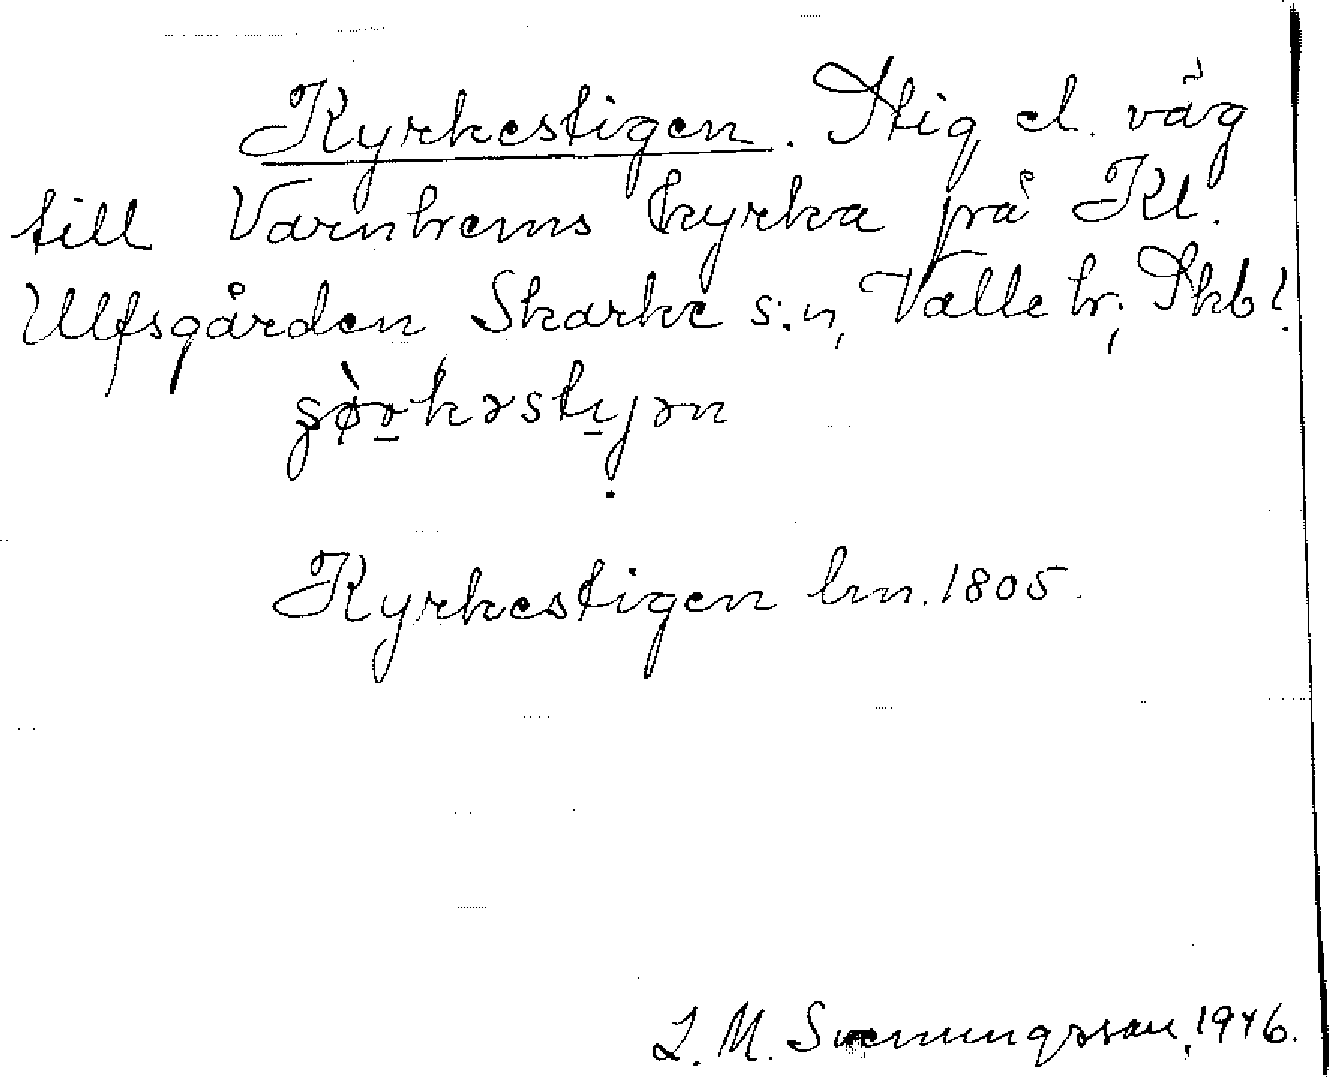 Kyrkestigen. Stig el. väg
till Varnhems kyrka frå Kl.
Ulfsgården Skarke s:n, Valle hr; Skbl.
Kyrkestigen lm. 1805.
L. M. Svenungsson, 1946.